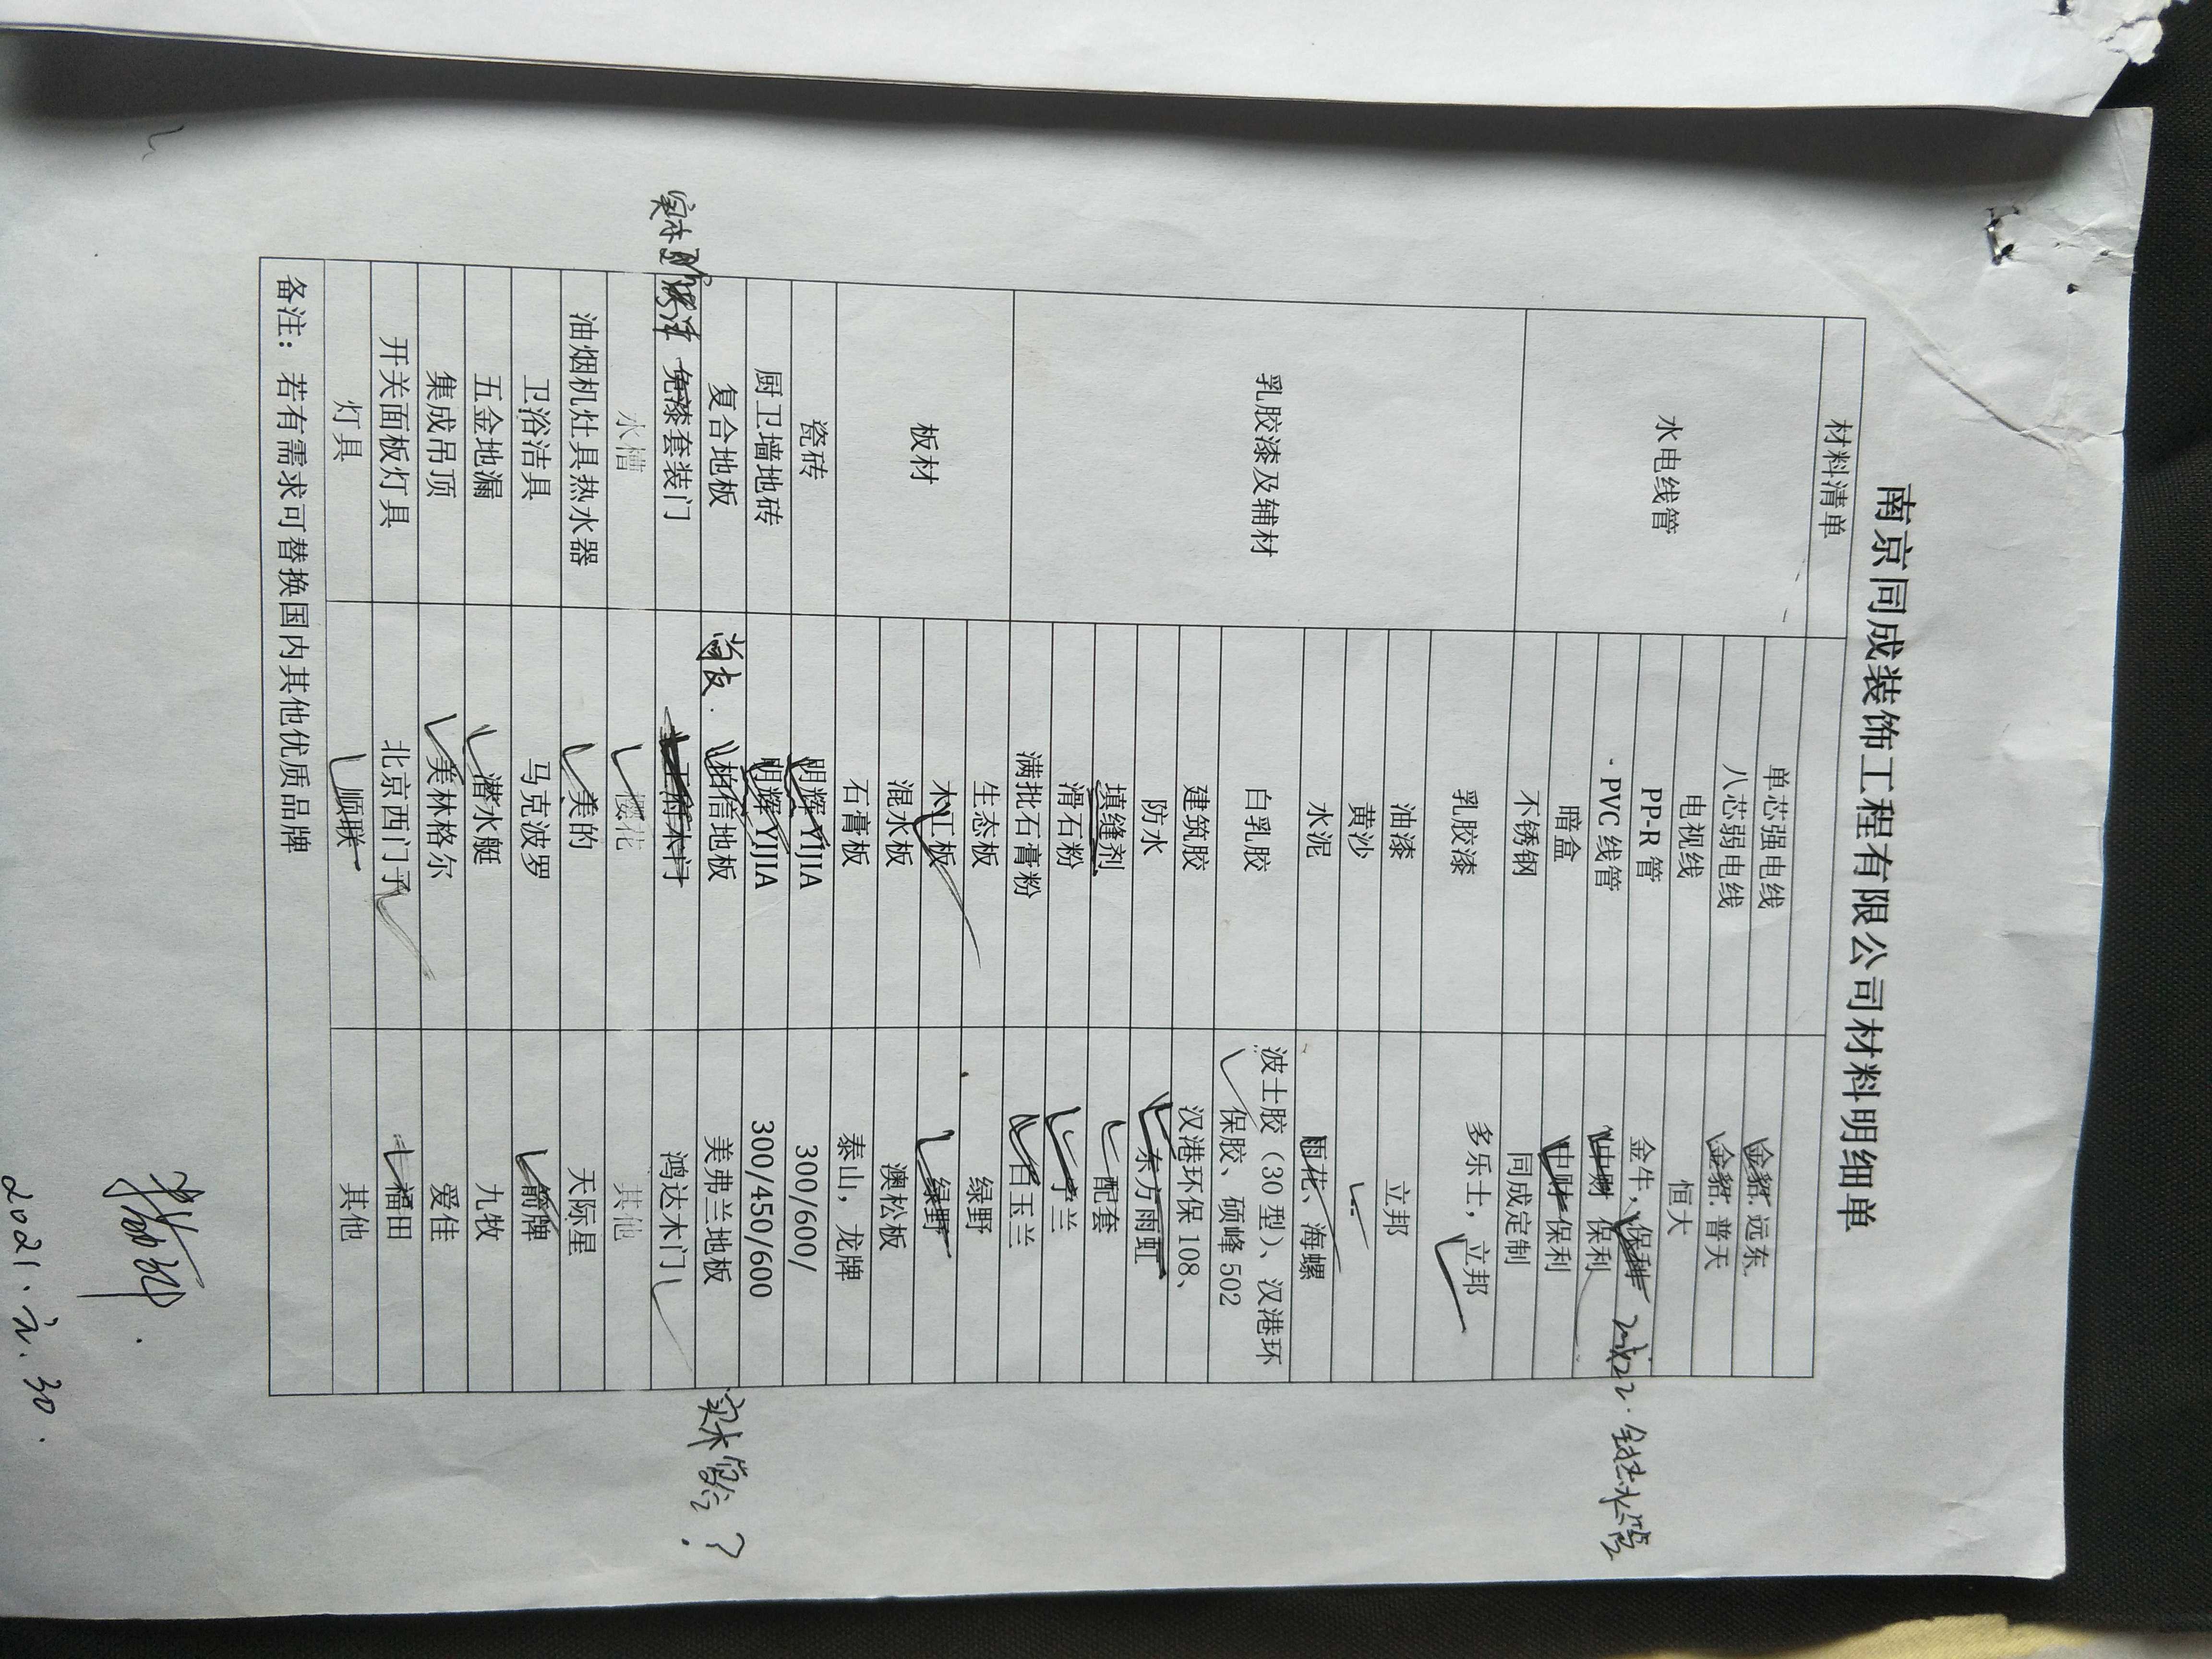 南京同成装饰工程有限公司材料明细单
材料清单
水电线管 单芯强电线 金貂. 远东.
八芯弱电线 金貂. 普天
电视线 恒大
PP-R 管 金牛，保利
PVC 线管 中财 保利
暗盒 中财 保利
不锈钢 同成定制
乳胶漆及辅材 乳胶漆 多乐士，立邦
油漆 立邦
黄沙
水泥 雨花、海螺
白乳胶 波士胶（30 型）、汉港环
保胶、硕峰 502
建筑胶 汉港环保 108、
防水 东方雨虹
填缝剂 配套
滑石粉 兰
满批石膏粉 白玉兰
板材 生态板 绿野
木工板 绿野
混水板 澳松板
石膏板 泰山，龙牌
瓷砖 明辉 YIJIA 300/600/
厨卫墙地砖 明辉 YIJIA 300/450/600
复合地板 尚友. 柏信地板 美弗兰地板 实木复合？
实木 免漆套装门 鸿达木门
水槽 樱花 其他
油烟机灶具热水器 美的 天际星
卫浴洁具 马克波罗 箭牌
五金地漏 潜水艇 九牧
集成吊顶 美林格尔 爱佳
开关面板灯具 北京西门子 福田
灯具 顺联 其他
备注：若有需求可替换国内其他优质品牌